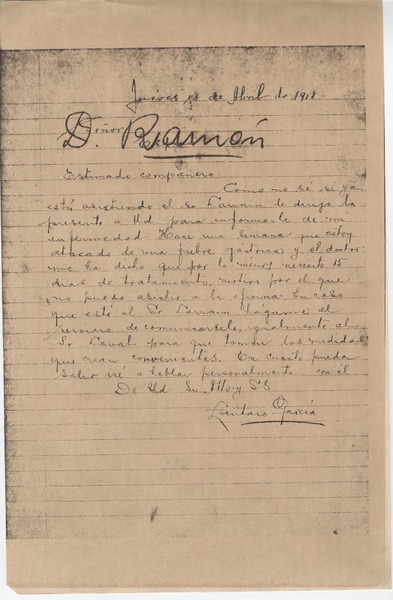 Jueves de Abril de 1918.
Señor
D. Ramón
Estimado compañero
Como no sé si ya
está asistiendo el Sr Larrain le dirijo la
presente a Ud para informarle de mi
enfermedad. Hace una semana que estoy
atacado de una fiebre gástrica y el doctor
me ha dicho que por lo menos necesito 15
dias de tratamiento, motivos por el que
no puedo asistir a la oficina. En caso
que esté el Sr Larrain hágame el
servicio de comunicarselo, igualmente al
Sr. Laval para que tomen las medidas
que crean convenientes. En cuanto pueda
salir iré a hablar personalmente con él
De Ud Su Atto y S.S.
Lautaro García